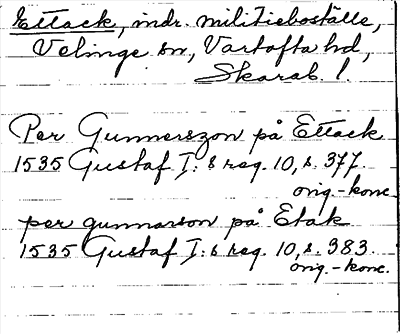 Ettack, indr. militieboställe,
Velinge sn, Vartofta hd,
Skarab. l.
Per Gunnerszon på Ettack
1535 Gustaf I:s reg. 10, s. 377.
orig.-konc.
per gunnarson på Etak
1535 Gustaf I:s reg. 10, s. 383.
orig.-konc.